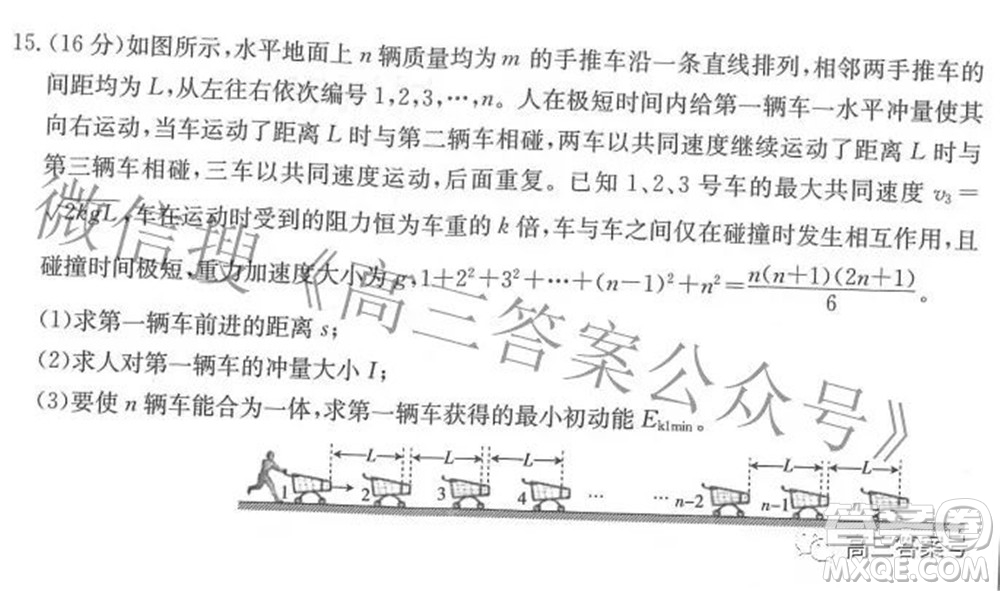 15.(16 分)如图所示,水平地面上 n 辆质量均为 m 的手推车沿一条直线排列,相邻两手推车的
间距均为 L,从左往右依次编号 1,2,3,…,n。人在极短时间内给第一辆车一水平冲量使其
向右运动,当车运动了距离 L 时与第二辆车相碰,两车以共同速度继续运动了距离 L 时与
第三辆车相碰,三车以共同速度运动,后面重复。已知 1、2、3 号车的最大共同速度 v₃=
√2kgL,车在运动时受到的阻力恒为车重的 k 倍,车与车之间仅在碰撞时发生相互作用,且
碰撞时间极短,重力加速度大小为 g,1+2²+3²+…+(n-1)²+n²=n(n+1)(2n+1)/6。
(1)求第一辆车前进的距离 s;
(2)求人对第一辆车的冲量大小 I;
(3)要使 n 辆车能合为一体,求第一辆车获得的最小初动能 Ek1min。
L L L L L
1 2 3 4 … … n-2 n-1
微信搜《高三答案公众号》
高三答案号
答案圈
MXQE.COM